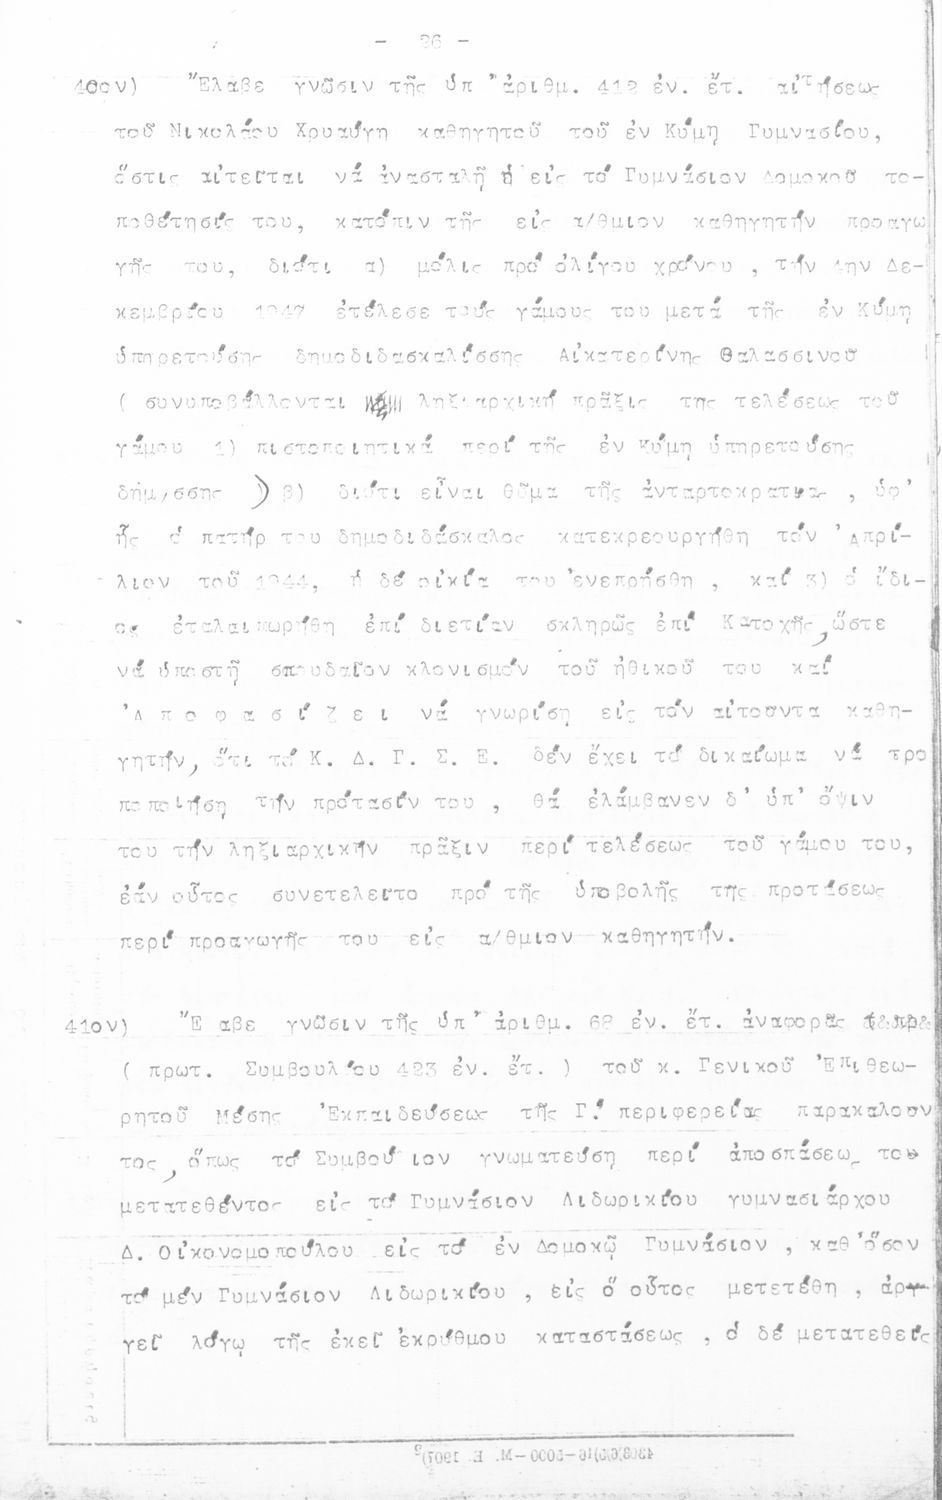 - 26 -
40ον) Ἔλαβε γνῶσιν τῆς ὑπ' ἀριθμ. 412 ἐν. ἔτ. αἰτήσεως
τοῦ Νικολάου Χρυαύγη καθηγητοῦ τοῦ ἐν Κύμῃ Γυμνασίου,
ὅστις αἰτεῖται νά ἀνασταλῇ ἡ εἰς τό Γυμνάσιον Δομοκοῦ το-
ποθέτησίς του, κατόπιν τῆς εἰς α/θμιον καθηγητήν προαγω
γῆς του, διότι α) μόλις πρό ὀλίγου χρόνου , τήν 4ην Δε-
κεμβρίου 1947 ἐτέλεσε τούς γάμους του μετά τῆς ἐν Κύμῃ
ὑπηρετούσης δημοδιδασκαλίσσης Αἰκατερίνης Θαλασσινοῦ
( συνυποβάλλονται ληξιαρχική πρᾶξις της τελέσεως τοῦ
γάμου 1) πιστοποιητικά περί τῆς ἐν Κύμῃ ὑπηρετούσης
δημ/σσης ) β) διότι εἶναι θῦμα τῆς ἀνταρτοκρατία- , ὑφ'
ἧς ὁ πατήρ του δημοδιδάσκαλος κατεκρεουργήθη τόν 'Απρί-
λιον τοῦ 1944, ἡ δέ οἰκία του ἐνεπρήσθη , καί 3) ὁ ἴδι-
ος ἐταλαιπωρήθη ἐπί διετίαν σκληρῶς ἐπί Κατοχῆς, ὥστε
νά ὑποστῇ σπουδαῖον κλονισμόν τοῦ ἠθικοῦ του καί
'Α π ο φ α σ ί ζ ε ι νά γνωρίσῃ εἰς τόν αἰτοῦντα καθη-
γητήν, ὅτι τό Κ. Δ. Γ. Σ. Ε. δέν ἔχει τό δικαίωμα νά τρο
ποποιήσῃ τήν πρότασίν του , θά ἐλάμβανεν δ' ὑπ' ὄψιν
του τήν ληξιαρχικήν πρᾶξιν περί τελέσεως τοῦ γάμου του,
ἐάν οὗτος συνετελεῖτο πρό τῆς ὑποβολῆς τῆς προτάσεως
περί προαγωγῆς του εἰς α/θμιον καθηγητήν.
41ον) Ἔ αβε γνῶσιν τῆς ὑπ' ἀριθμ. 62 ἐν. ἔτ. ἀναφορᾶς
( πρωτ. Συμβουλίου 423 ἐν. ἔτ. ) τοῦ κ. Γενικοῦ Ἐπιθεω-
ρητοῦ Μέσης Ἐκπαιδεύσεως τῆς Γ.' περιφερείας παρακαλοῦν
τος, ὅπως τό Συμβού ιον γνωματεύσῃ περί ἀποσπάσεω_ του
μετατεθέντος εἰς τό Γυμνάσιον Λιδωρικίου γυμνασιάρχου
Δ. Οἰκονομοπούλου εἰς τό ἐν Δομοκῷ Γυμνάσιον , καθ'ὅσον
τό μέν Γυμνάσιον Λιδωρικίου , εἰς ὅ οὗτος μετετέθη , ἀρ-
γεῖ λόγῳ τῆς ἐκεῖ ἐκρύθμου καταστάσεως , ὁ δέ μετατεθείς